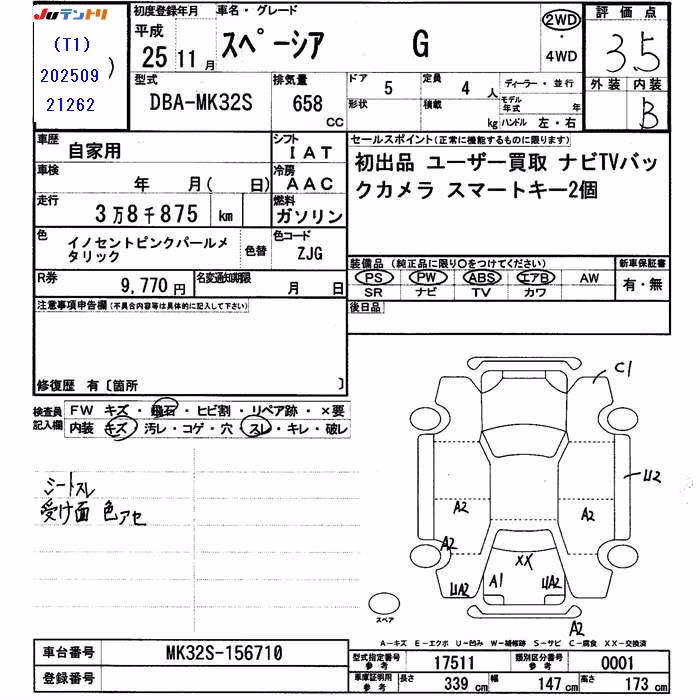 JUテントリ
(T1)
202509
21262
)
初度登録年月 車名・グレード
平成
25年11月
スペーシア G
2WD
・
4WD
評価点
3.5
外装 内装
B
型式
DBA-MK32S
排気量
658
CC
ドア 5
定員 4 人
形状 積載 kg
ディーラー・並行
モデル年式 年
ハンドル 左・右
車歴
自家用
シフト
IAT
車検
年 月( 日)
冷房
AAC
走行
3万8千875 km
燃料
ガソリン
色
イノセントピンクパールメ
タリック
色替
色コード
ZJG
R券
9,770円
名変通知期限
月 日
セールスポイント(正常に機能するものに限ります)
初出品 ユーザー買取 ナビTVバッ
クカメラ スマートキー2個
装備品(純正品に限り○をつけてください)
PS PW ABS エアB AW
SR ナビ TV カワ
新車保証書
有・無
後日品
注意事項申告欄(不具合内容等は具体的に記入して下さい)
修復歴 有〔箇所 〕
検査員
記入欄
FW キズ・飛石・ヒビ割・リペア跡・×要
内装 キズ・汚レ・コゲ・穴・スレ・キレ・破レ
シートスレ
受け面 色アセ
C1
U2
A2
A2
A2
XX
UA2
A1
UA2
A2
スペア
A-キズ E-エクボ U-凹み W-補修跡 S-サビ C-腐食 XX-交換済
車台番号 MK32S-156710
登録番号
型式指定番号
参考
17511
類別区分番号
参考
0001
車庫証明用
参考
長さ 339 cm 幅 147 cm 高さ 173 cm